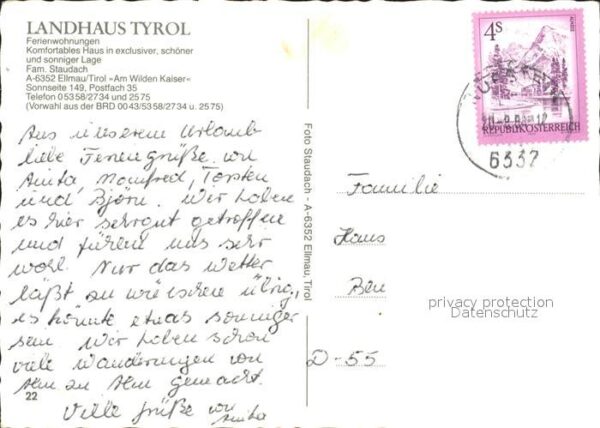 LANDHAUS TYROL
Ferienwohnungen
Komfortables Haus in exclusiver, schöner
und sonniger Lage
Fam. Staudach
A-6352 Ellmau/Tirol »Am Wilden Kaiser«
Sonnseite 149, Postfach 35
Telefon 0 53 58/27 34 und 25 75
(Vorwahl aus der BRD 00 43/53 58/27 34 u. 25 75)
Aus unserem Urlaub
liebe Feriengrüße von
Anita, Manfred, Torsten
und Björn. Wir haben
es hier sehr gut getroffen
und fühlen uns sehr
wohl. Nur das Wetter
läßt zu wünschen übrig,
es könnte etwas sonniger
sein. Wir haben schon
viele Wanderungen von
Alm zu Alm gemacht.
Viele Grüße von
Anita
22
Foto Staudach - A-6352 Ellmau, Tirol
4S
REPUBLIK ÖSTERREICH
6332
Familie
Hans
D-55
privacy protection
Datenschutz